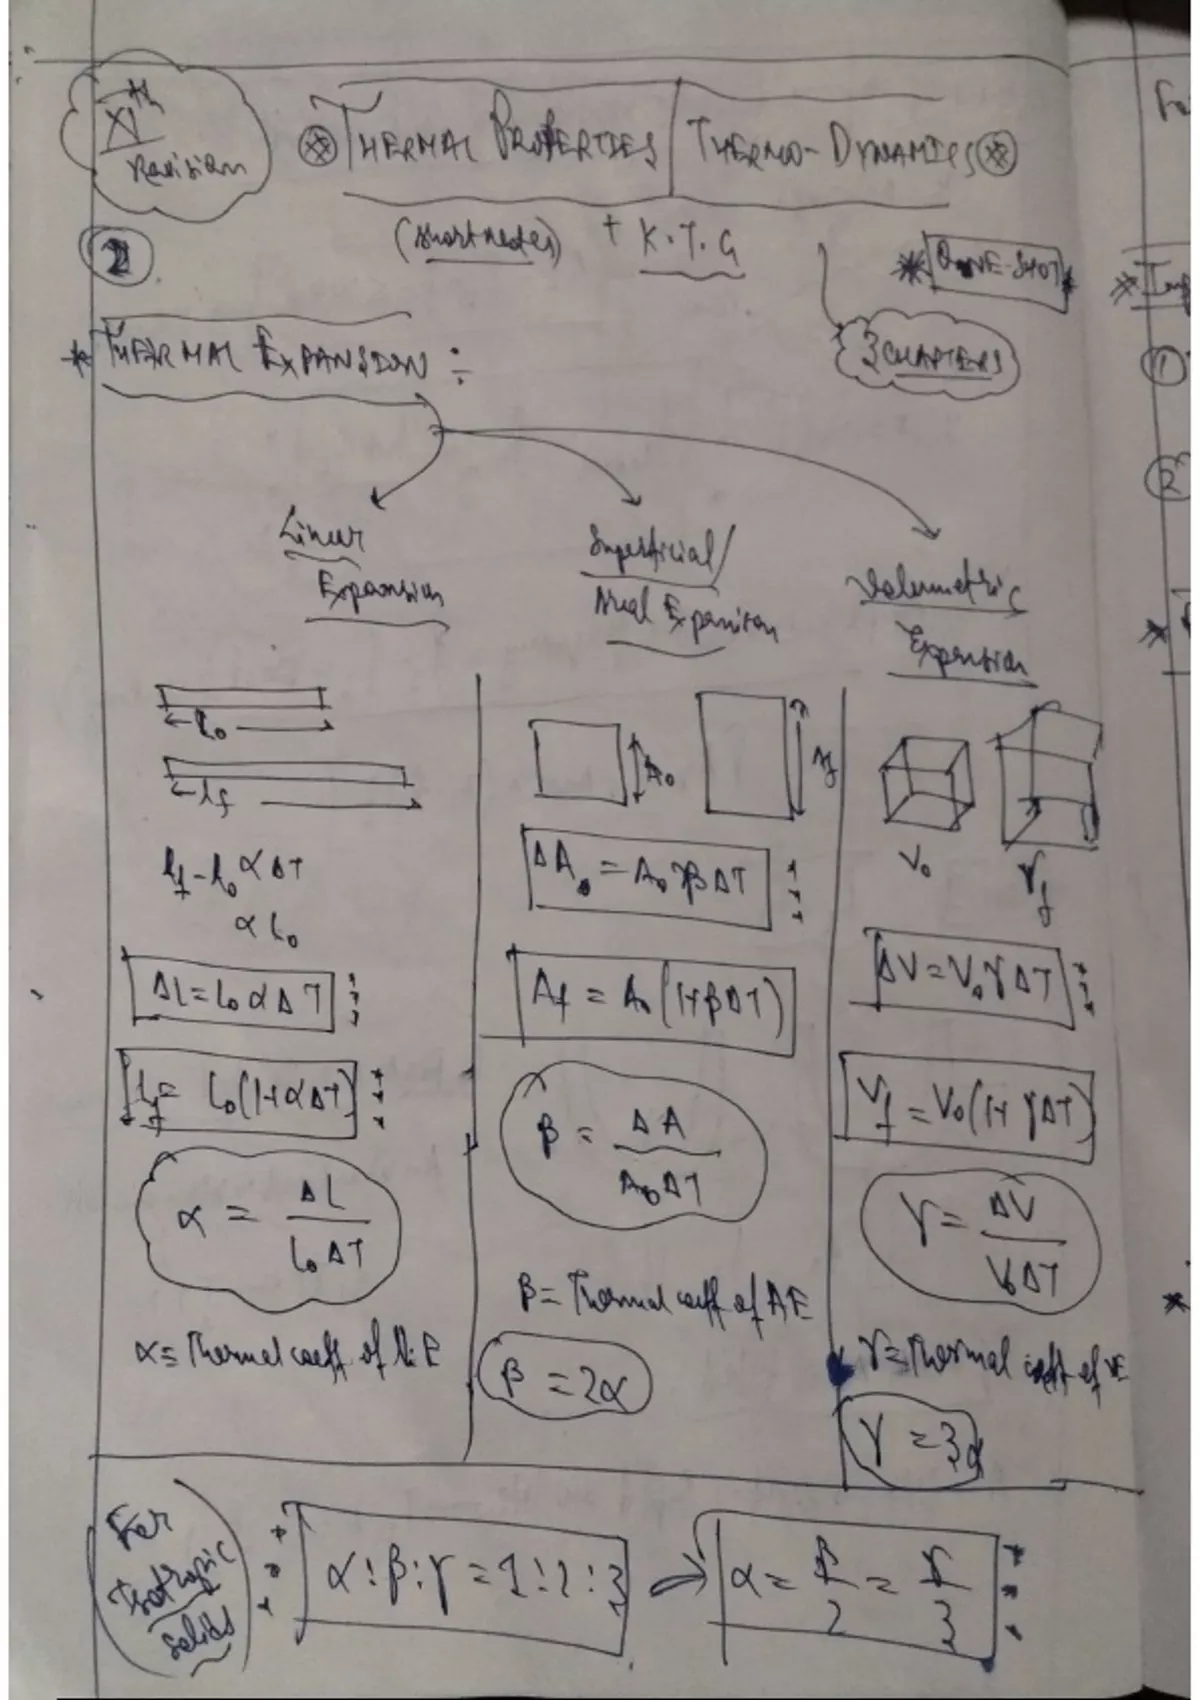 XIth
Revision
THERMAL PROPERTIES | THERMO-DYNAMICS
(short notes) + K.T.G
* ONE-SHOT *
2
3 CHAPTERS
* THERMAL EXPANSION :
Linear
Expansion
Superficial/
Areal Expansion
Volumetric
Expansion
l₀
lf
lf - l₀ ∝ ΔT
∝ l₀
ΔL = L₀ α ΔT
Lf = L₀(1+αΔT)
α = ΔL / L₀ΔT
α = Thermal coeff of L.E
A₀
Af
ΔA = A₀ β ΔT
Af = A₀(1+βΔT)
β = ΔA / A₀ΔT
β = Thermal coeff of AE
β = 2α
V₀
Vf
ΔV = V₀ γ ΔT
Vf = V₀(1+ γΔT)
γ = ΔV / V₀ΔT
γ = Thermal coeff of VE
γ = 3α
For
Isotropic
Solids
α : β : γ = 1 : 2 : 3
α = β/2 = γ/3
1
2